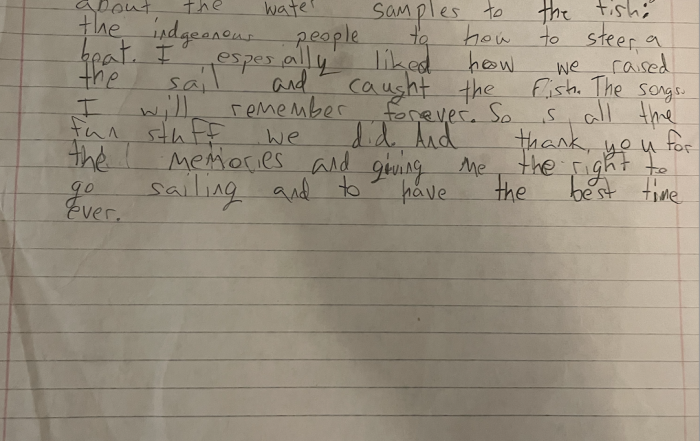 about the water samples to the fish:
the indgeonous people to how to steer a
boat. I espesially liked how we raised
the sail and caught the fish. The songs
I will remember forever. So is all the
fun stuff we did. And thank, you for
the memories and giving me the right to
go sailing and to have the best time
ever.